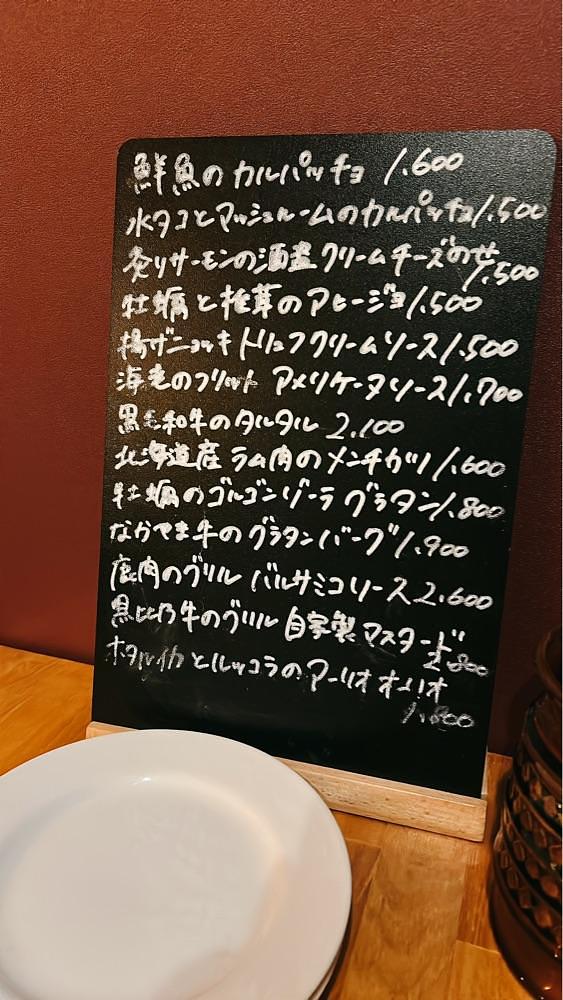 鮮魚のカルパッチョ 1.600
水タコとマッシュルームのカルパッチョ 1.500
炙りサーモンの酒盗クリームチーズのせ
1.500
牡蠣と椎茸のアヒージョ 1.500
揚げニョッキ トリュフクリームソース 1.500
海老のフリット アメリケーヌソース 1.700
黒毛和牛のタルタル 2.100
北海道産 ラム肉のメンチカツ 1.600
牡蠣のゴルゴンゾーラ グラタン 1.800
なかやま牛のグラタンバーグ 1.900
鹿肉のグリル バルサミコソース 2.600
黒比乃牛のグリル 自家製マスタード
ホタルイカとルッコラのアーリオオーリオ
1.800